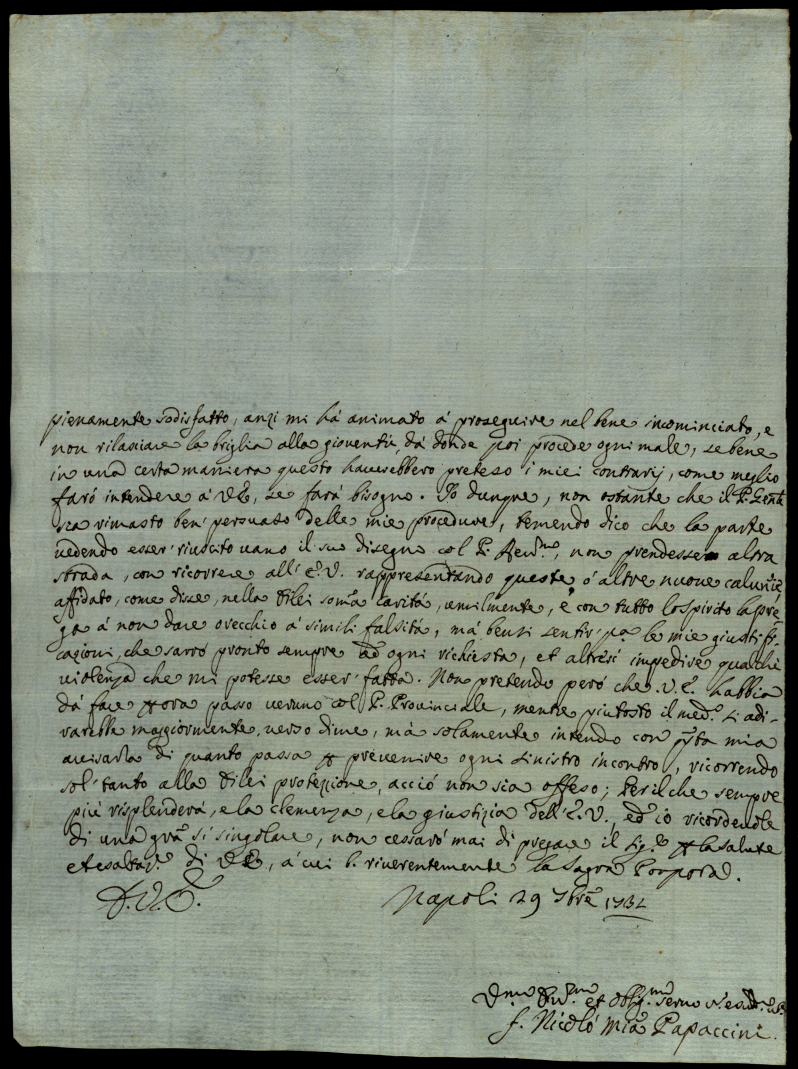 pienamente sodisfatto, anzi mi há animato á proseguire nel bene incominciato, e
non rilasciare la briglia alla gioventú, dá donde poi procede ogni male, se bene
in una certa maniera questo haverebbero preteso i miei contrarij, come meglio
faró intendere á V.E., se fará bisogno. Io dunque, non ostante che il P. Genle
sia rimasto ben persuaso delle mie procedure, temendo dico che la parte
vedendo esser riuscito vano il suo disegno col P. Revmo, non prendesse altra
strada, con ricorrere all' E.V. rappresentando queste, ó altre nuove calunie
affidato, come disse, nella di lei soma caritá, umilmente, e con tutto lo spirito la pre
ga á non dare orecchio á simili falsitá, má bensi sentir pa le mie giustifi
cazioni, che saró pronto sempre ad ogni richiesta, et altresi impedire qualche
violenza che mi potesse esser fatta. Non pretendo peró che V.E. habbia
dá fare per ora passo veruno col P. Provinciale, mentre piutosto il medo s'adi
rarebbe maggiormente verso di me, má solamente intendo con qsta mia
avisarla di quanto passa per prevenire ogni sinistro incontro, ricorrendo
sol' tanto alla di lei protezzione, acció non sia offeso; Per il che sempre
piú risplenderá, e la clemenza, e la giustizia dell' E.V., ed io ricordevole
di una gra si singolare, non cessaró mai di pregare il Sigre per la salute
et esaltaze di V.E., á cui b. riverentemente la Sagra Porpora.
D.V.E. Napoli 29 9bre 1732
Dmo Devmo et Obbgmo servo
f. Nicoló Mia Papaccini